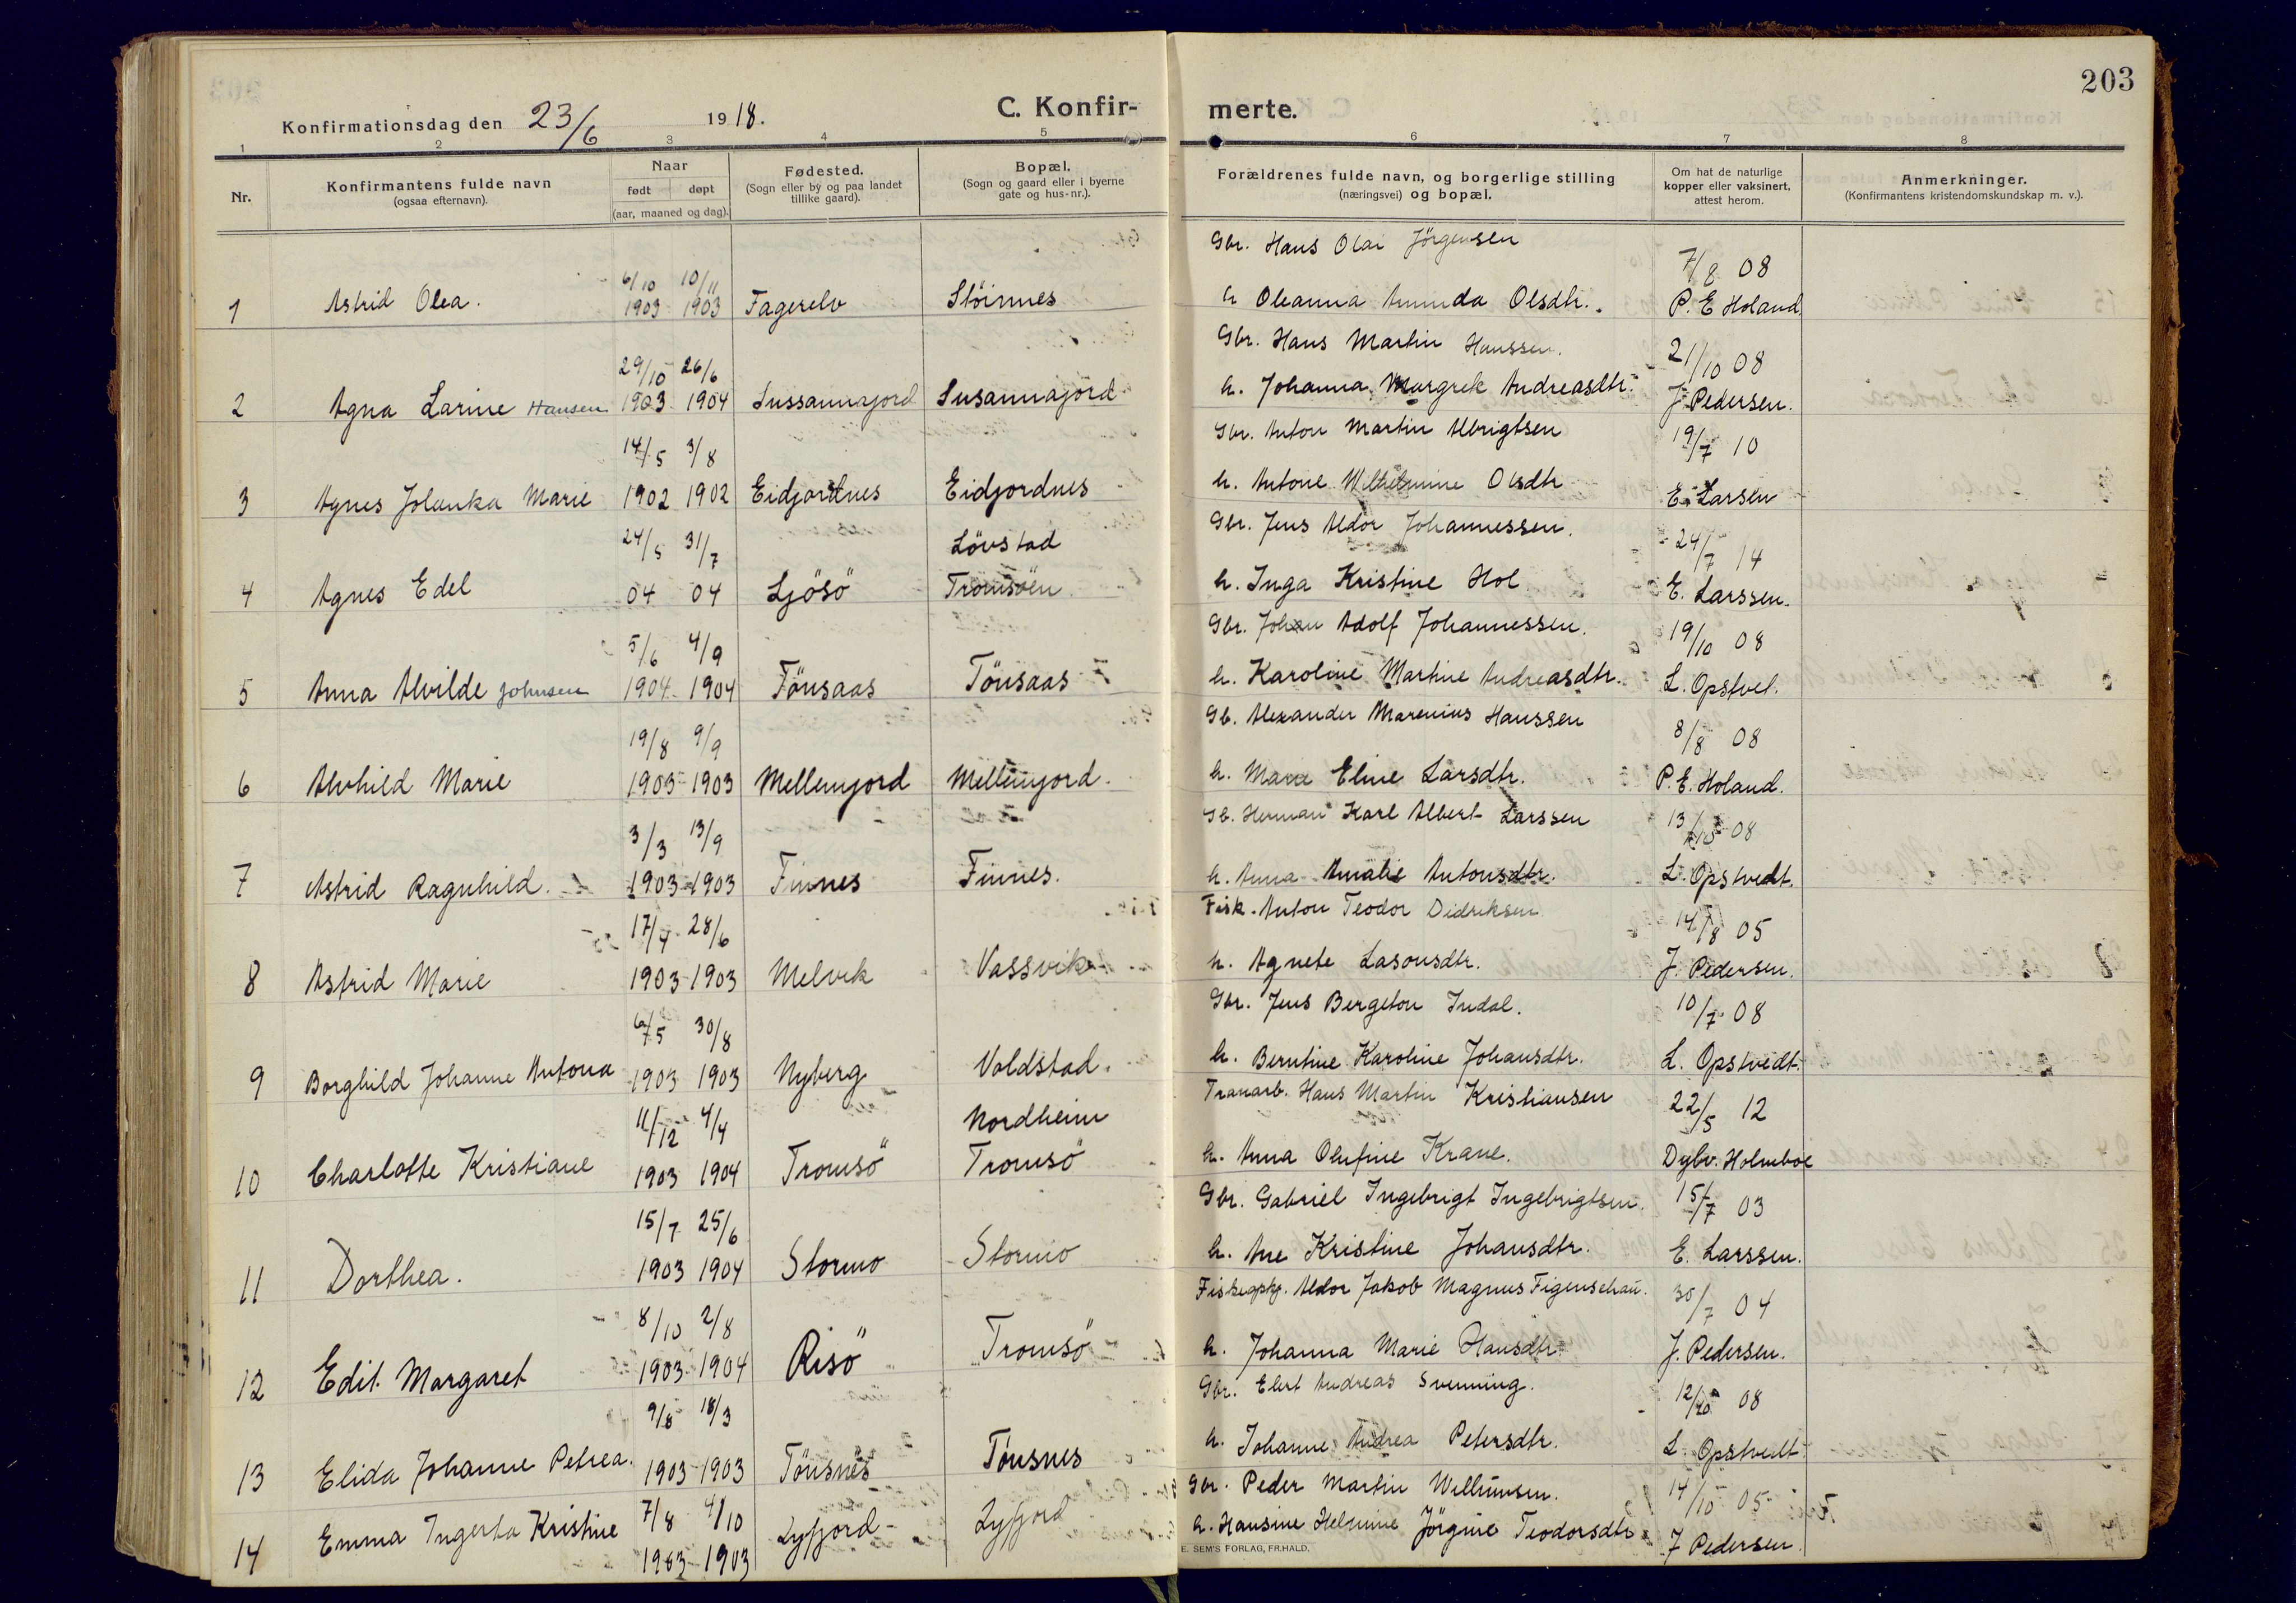 203
Konfirmationsdag den 23/6 1918.
C. Konfirmerte.
1 2 3 4 5 6 7 8
Nr.
Konfirmantens fulde navn
(ogsaa efternavn).
Naar
født døpt
(aar, maaned og dag).
Fødested.
(Sogn eller by og paa landet
tillike gaard).
Bopæl.
(Sogn og gaard eller i byerne
gate og hus-nr.).
Forældrenes fulde navn, og borgerlige stilling
(næringsvei) og bopæl.
Om hat de naturlige
kopper eller vaksinert,
attest herom.
Anmerkninger.
(Konfirmantens kristendomskundskap m. v.).
6/10 10/11 Gbr. Hans Olai Jörgensen 7/8 08
1 Astrid Olea. 1903 1903 Fagerelv Stöinnes h Oleanna Amunda Olsdtr. P. E Holand.
29/10 26/6 Gbr. Hans Martin Hanssen. 21/10 08
2 Agna Larine Hansen 1903 1904 Sussannajord Susannajord h. Johanna Margrek Andreasdtr. J. Pedersen.
14/5 3/8 Gbr. Anton Martin Albrigtsen 19/7 10
3 Agnes Jolanka Marie 1902 1902 Eidjordnes Eidjordnes h. Antone Wilhelmine Olsdtr E. Larsen
24/5 31/7 Lövstad Gbr. Jens Aldor Johannessen. 24/7 14
4 Agnes Edel 04 04 Ljösö Tromsöen h. Inga Kristine Hol E. Larssen.
5/6 4/9 Gbr. Johan Adolf Johannessen. 19/10 08
5 Anna Alvilde Johnsen 1904 1904 Tönsaas Tönsaas h. Karoline Martine Andreasdtr. L. Opstvet.
19/8 9/9 Gb. Alexander Marenius Hanssen 8/8 08
6 Alvhild Marie 1903 1903 Mellemjord Mellemjord. h. Marie Eline Larsdtr. P. E. Holand.
3/3 13/9 Gb. Herman Karl Albert Larssen 13/10 08
7 Astrid Ragnhild. 1903 1903 Finnes Finnes. h. Anna Amalie Antonsdtr. L. Opstvedt.
17/4 28/6 Fisk. Anton Teodor Didriksen 14/8 05
8 Astrid Marie 1903 1903 Melvik Vassvik h. Agnete Lasonsdtr. J. Pedersen.
6/5 30/8 Gbr. Jens Bergeton Indal. 10/7 08
9 Borghild Johanne Antona 1903 1903 Nyberg Voldstad. h. Berntine Karoline Johansdtr. L. Opstvedt.
11/12 4/4 Nordheim Tranarb. Hans Martin Kristiansen 22/5 12
10 Charlotte Kristiane 1903 1904 Tromsö Tromsö h. Anna Olufine Krane. Dybv. Holmboe
15/7 25/6 Gbr. Gabriel Ingebrigt Ingebrigtsen. 15/7 03
11 Dorthea. 1903 1904 Stormo Stormo h. Ane Kristine Johansdtr. E. Larssen.
8/10 2/8 Fiskeopkj. Aldor Jakob Magnus Figenschau. 30/7 04
12 Edit Margaret 1903 1904 Risö Tromsö h. Johanna Marie Hansdtr J. Pedersen.
9/8 18/3 Gbr. Elert Andreas Svenning. 12/10 08
13 Elida Johanne Petrea. 1903 1903 Tönsnes Tönsnes h. Johanne Andrea Petersdtr. L. Opstvedt
7/8 4/10 Gbr. Peder Martin Willumsen. 14/10 05
14 Emma Ingerta Kristine 1903 1903 Lyfjord Lyfjord h. Hansine Helmine Jörgine Teodorsdtr J Pedersen.
E. SEM'S FORLAG, FR.HALD.